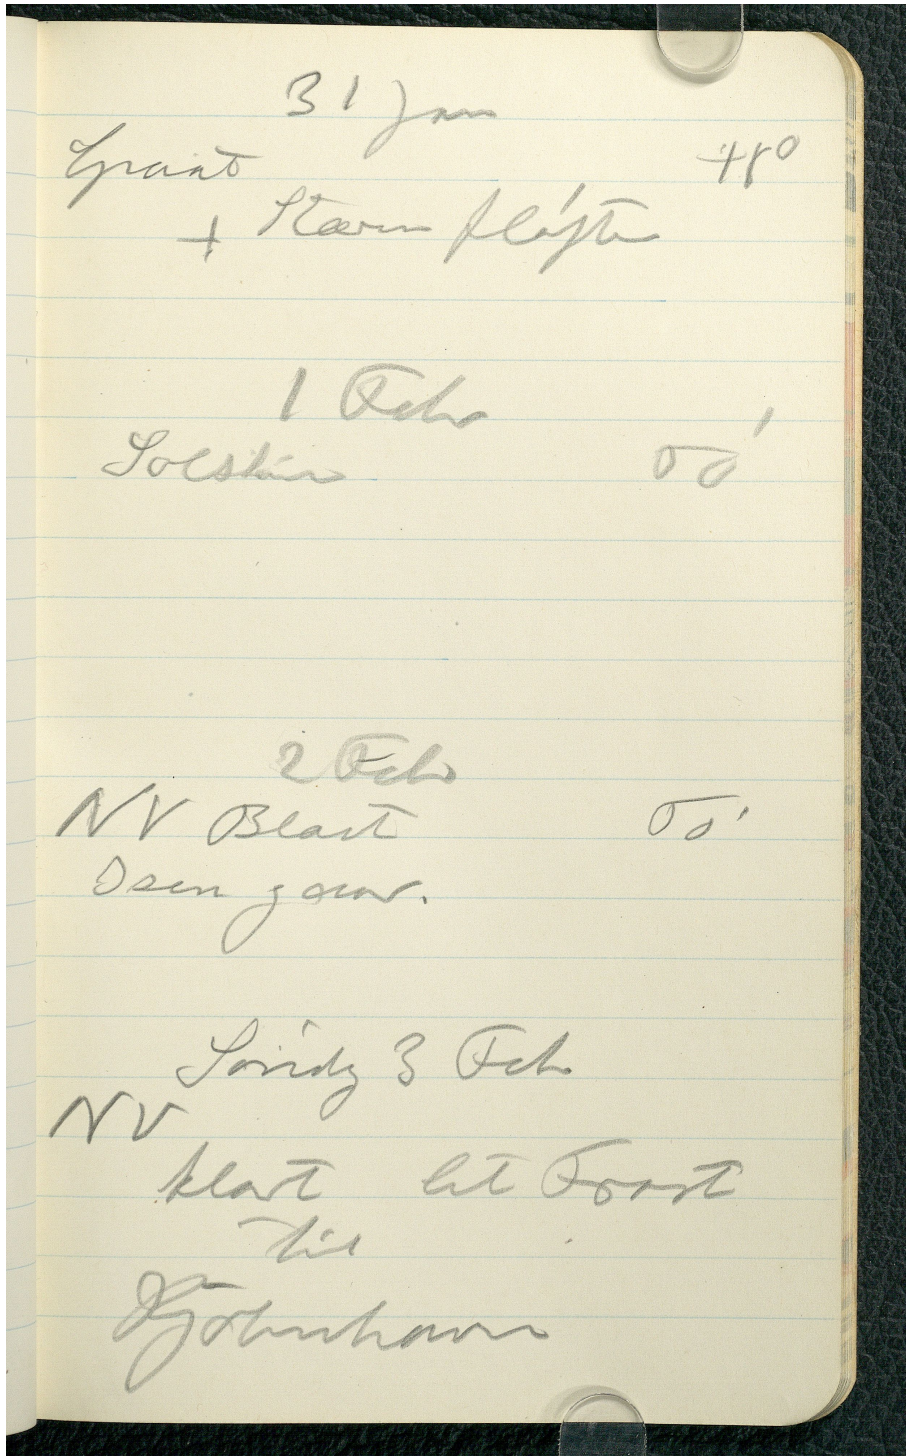 31 Jan
Graat +8°
+ Stærn fløjte
1 Febr
Solskin Tø
2 Feb
NV Blæst Tø
Isen
Søndg 3 Feb
NV
klart let Frost
til
Kjøbenhavn